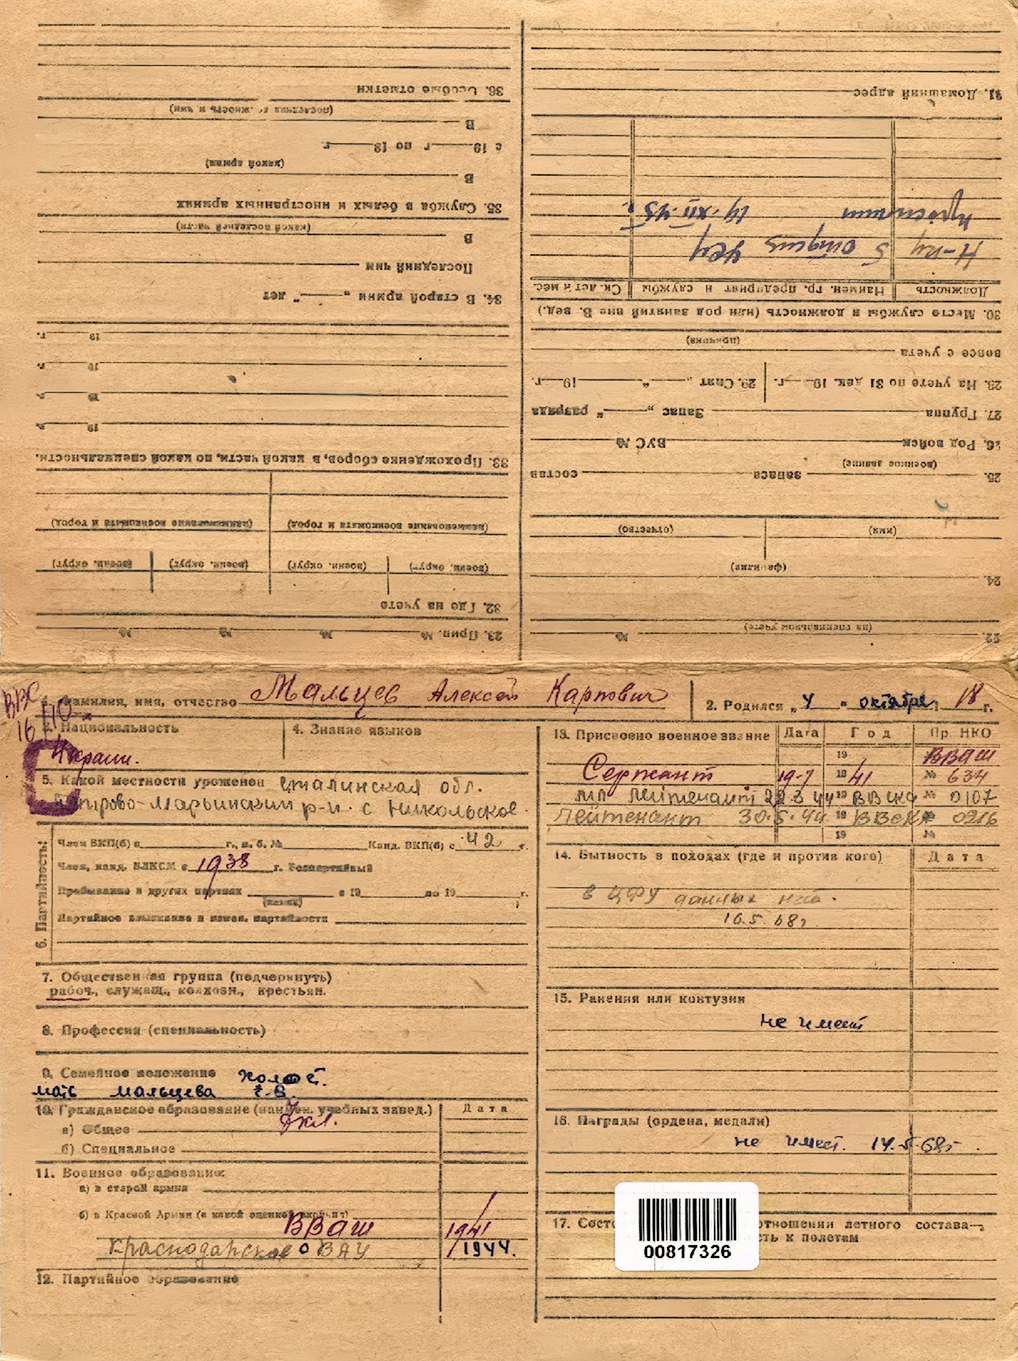 1. Фамилия, имя, отчество Мальцев Алексей Карпович
2. Родился „4" октября 18 г.
ВВС
3. Национальность
Украин.
4. Знание языков
5. Какой местности уроженец Сталинская обл.
Петрово-Марьинский р-н. с Никольское.
6. Партийность:
Член ВКП(б) с г., п. б. № Канд. ВКП(б) с 42 г.
Член, канд. ВЛКСМ с 1938 г. Беспартийный
Пребывание в других партиях с 19 по 19 г.
(каких)
Партийные взыскания и измен. партийности
7. Общественная группа (подчеркнуть)
рабоч., служащ., колхозн., крестьян.
8. Профессия (специальность)
9. Семейное положение холост.
мать Мальцева Е.В.
10. Гражданское образование (наимен. учебных завед.) Дата
а) Общее 7 кл.
б) Специальное
11. Военное образование:
а) в старой армии
б) в Красной Армии (с какой оценкой окончил)
ВВАШ 1941
Краснодарское ОВАУ 1944.
12. Партийное образование
13. Присвоено военное звание Дата Год Пр. НКО
19 ВВАШ
Сержант 19-7 1941 № 634
мл лейтенант 22.3 44 ВВСКА № 0107
Лейтенант 30.5.44 19 ВВСКА № 0216
19 №
14. Бытность в походах (где и против кого) Дата
в ЦФУ данных нет.
16.5.68г
15. Ранения или контузии
не имеет
16. Награды (ордена, медали)
не имеет. 14.5.68г.
17. Сост отношении летного состава
сть к полетам
00817326
22. (на специальном учете) №
24.
(фамилия)
(имя) (отчество)
25. запаса состав
(военное звание)
26. Род войск ВУС №
27. Группа Запас „ " разряда
28. На учете по 31 дек. 19 г. 29. Снят „ " 19 г.
вовсе с учета
(причина)
30. Место службы и должность (или род занятий вне В. вед.)
Должность Наимен. гр. предприят и службы Ск. лет и мес.
Н-ку 5 отдела УСУ
Прислан 14.XII.45г.
31. Домашний адрес
23. Прип. № № № №
32. Где на учете
(военн. округ) (военн. округ) (военн. округ) (военн. округ)
(наименование военкомата и город) (наименование военкомата и город)
33. Прохождение сборов, в какой части, по какой специальности.
19 г.
19 г.
19 г.
19 г.
34. В старой армии „ " лет
Последний чин
В
(какой последней части)
35. Служба в белых и иностранных армиях
В
(какой армии)
с 19 г по 19 г.
В
(последняя должность и чин)
36. Особые отметки